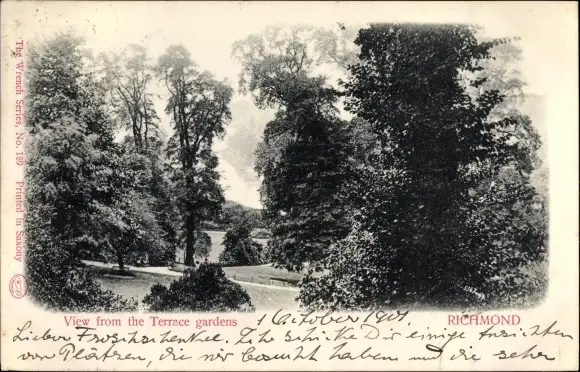 The Wrench Series, No. 189 Printed in Saxony
View from the Terrace gardens
RICHMOND
1 October 1901
Lieber Froschschenkel. Ich schicke Dir einige Ansichten
von Plätzen, die wir besucht haben und die sehr